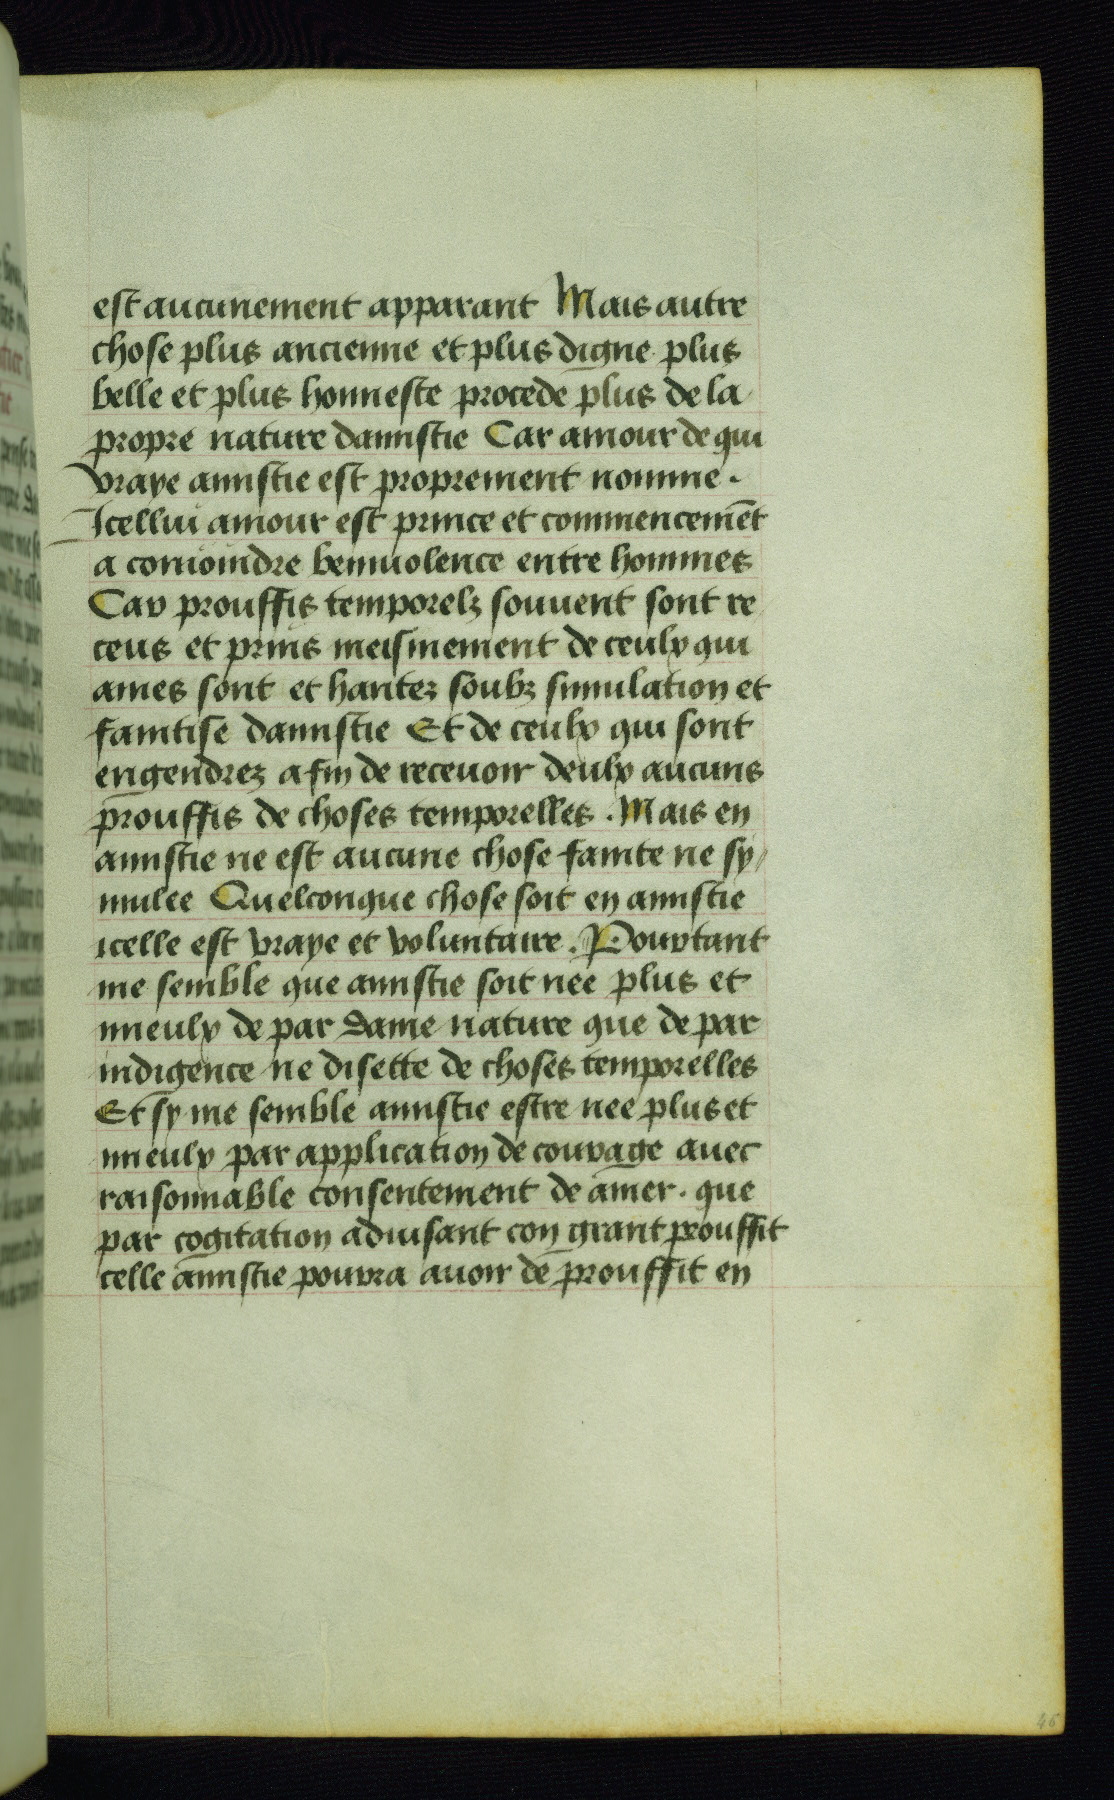 est aucunement apparant Mais autre
chose plus ancienne et plus digne plus
belle et plus honneste procede plus de la
propre nature damistie Car amour de qui
vraye amistie est proprement nomme.
Icellui amour est prince et commencemēt
a conioindre beniuolence entre hommes
Car prouffis temporelz souuent sont re
ceus et prins meismement de ceulx qui
ames sont et hantez soubz simulation et
faintise damistie Et de ceulx qui sont
engendrez a fin de receuoir deulx aucuns
prouffis de choses temporelles. Mais en
amistie ne est aucune chose fainte ne sy/
mulee Quelconque chose soit en amistie
icelle est vraye et voluntaire. Pourtant
me semble que amistie soit nee plus et
mieulx de par dame nature que de par
indigence ne disette de choses temporelles
Et sy me semble amistie estre nee plus et
mieulx par application de courage auec
raisonnable consentement de amer. que
par cogitation aduisant con grant prouffit
celle amistie pourra auoir de prouffit en
46